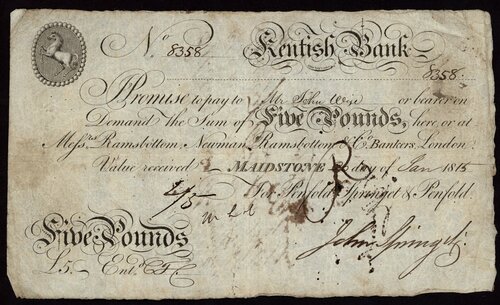 No 8358 Kentish Bank
8358
I Promise to pay to Mr John Wise or bearer on
Demand the Sum of Five Pounds, here, or at
Messrs Ramsbottom Newman, Ramsbottom & Co. Bankers, London.
Value received MAIDSTONE day of Jan 1815
For Penfold Springet & Penfold
Five Pounds
£5. Entd.
John Springet